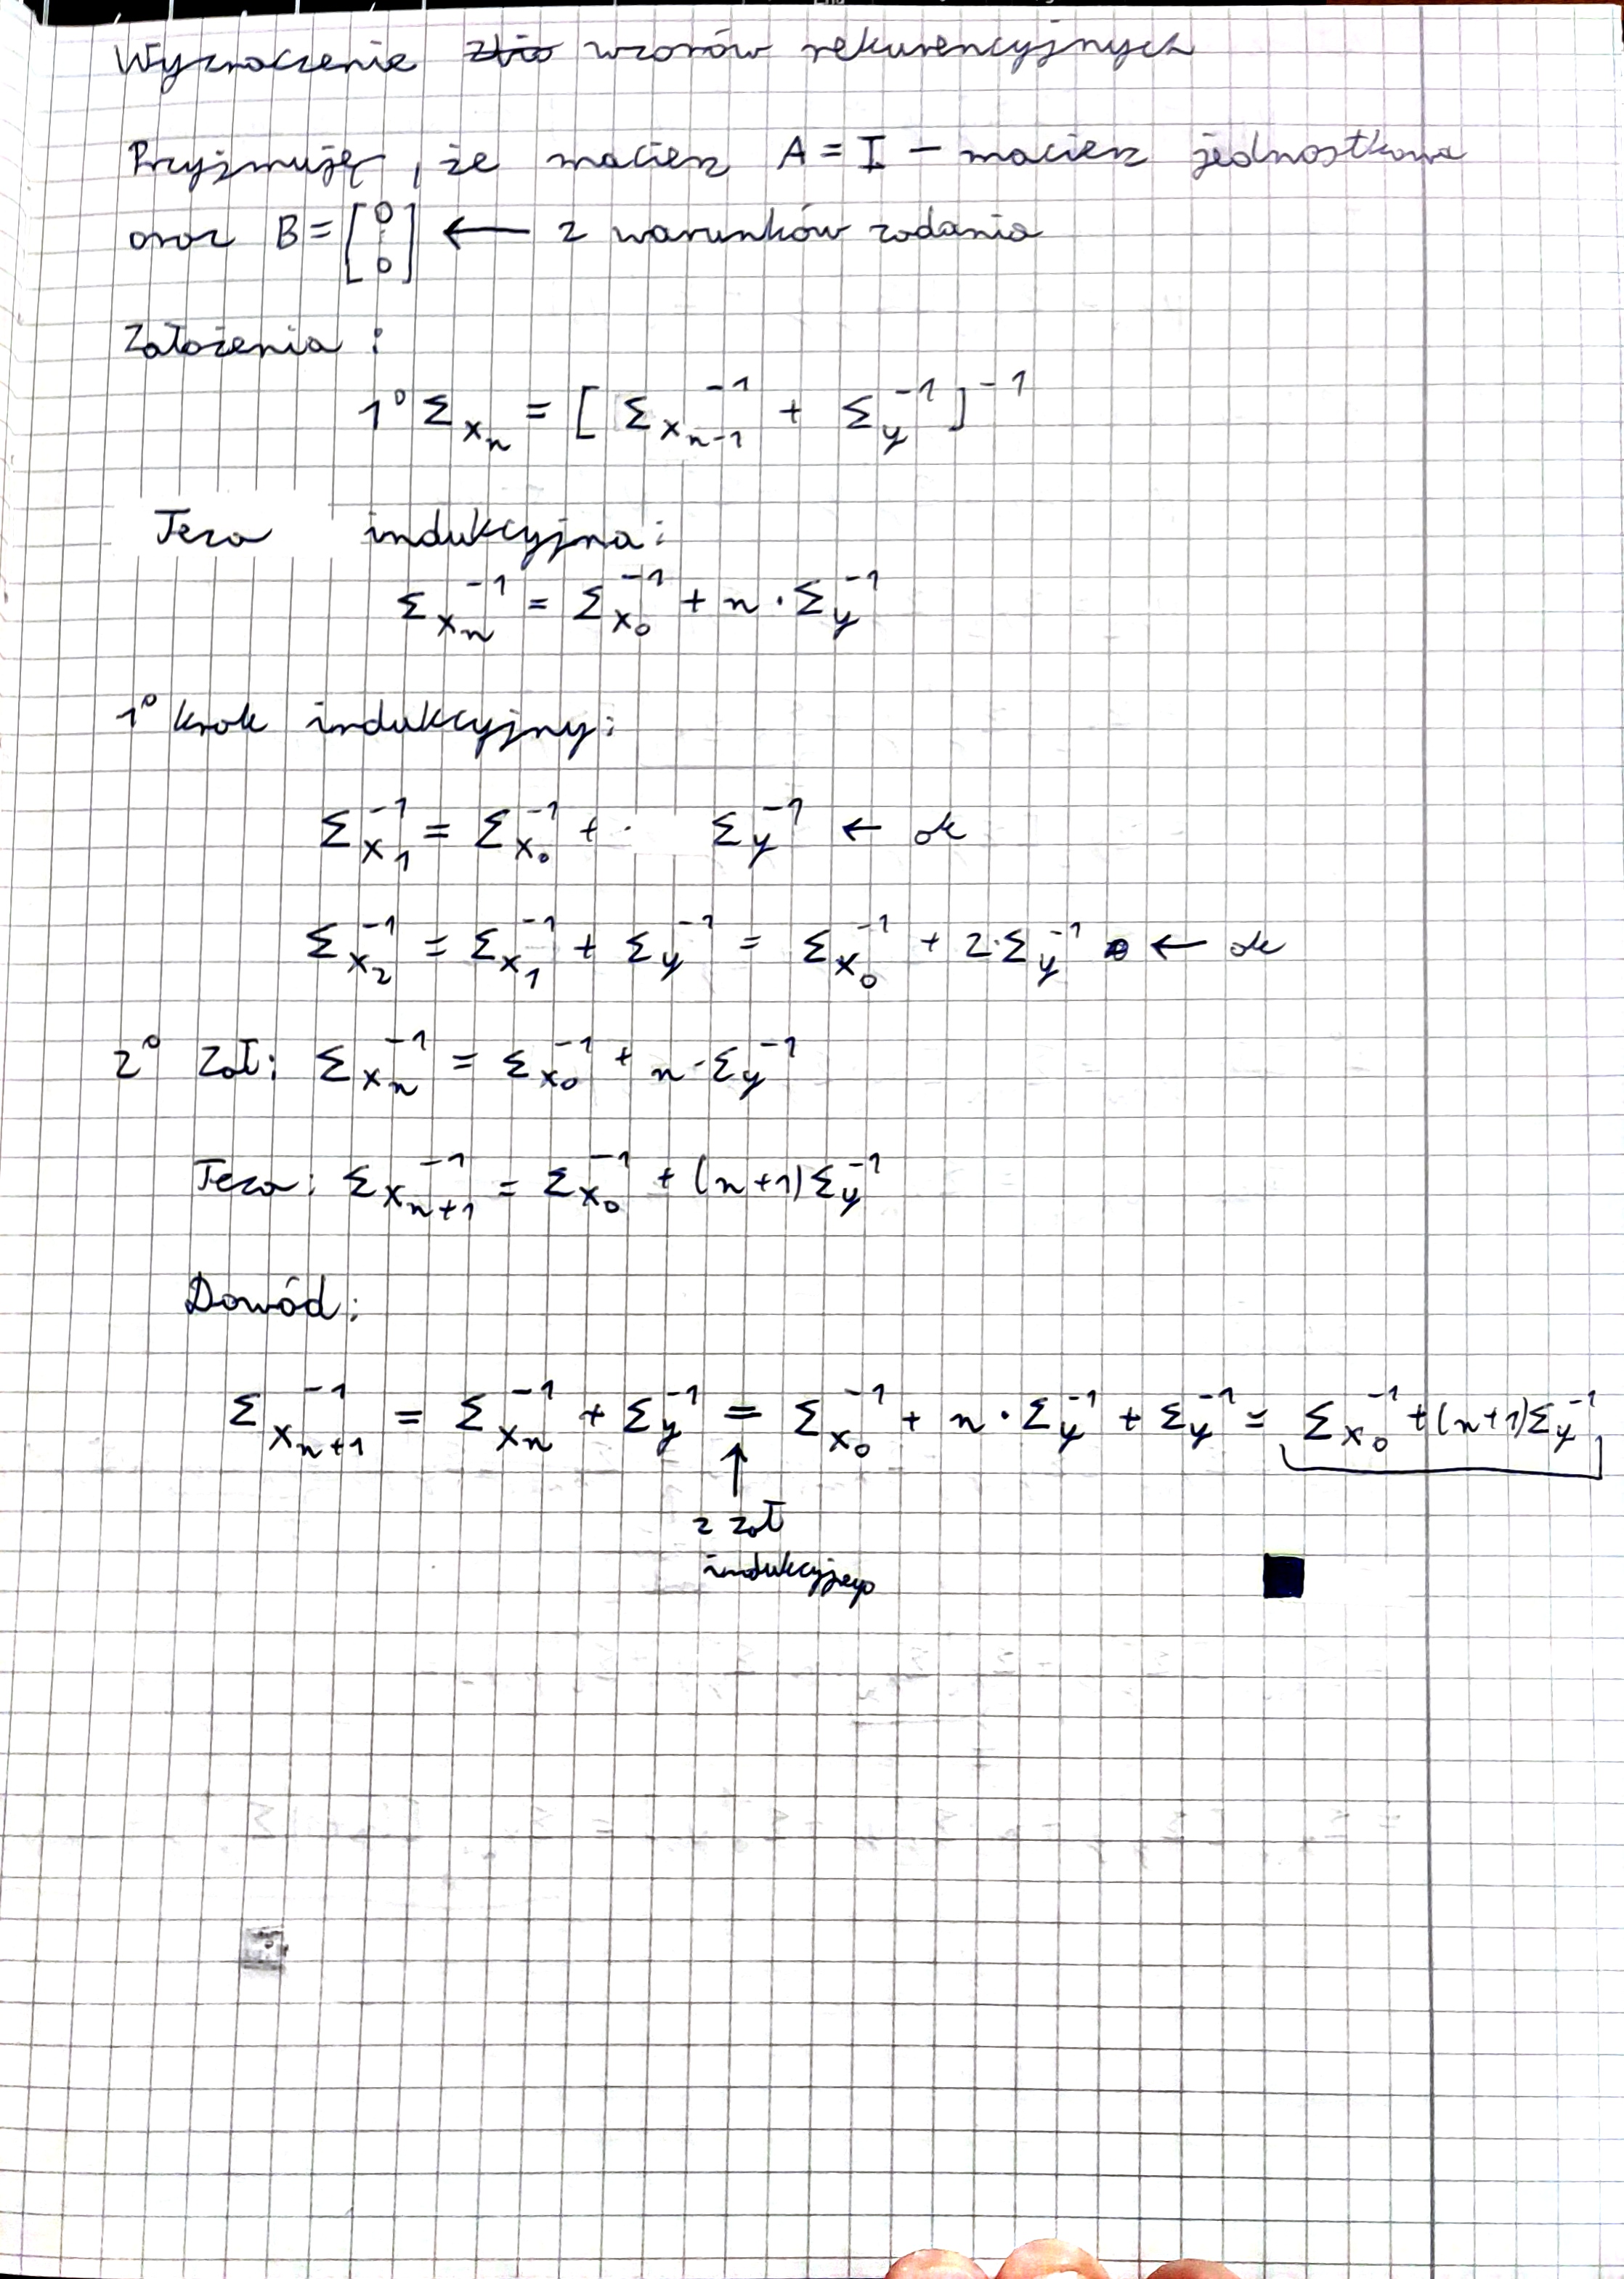 Wyznaczenie wzorów rekurencyjnych
Przyjmuję, że macierz A = I - macierz jednostkowa
oraz B = [0 ⋮ 0] ← z warunków zadania
Założenia:
1° Σ_{x_n} = [Σ_{x_{n-1}}^{-1} + Σ_y^{-1}]^{-1}
Teza indukcyjna:
Σ_{x_n}^{-1} = Σ_{x_0}^{-1} + n · Σ_y^{-1}
1° krok indukcyjny:
Σ_{x_1}^{-1} = Σ_{x_0}^{-1} + · Σ_y^{-1} ← ok
Σ_{x_2}^{-1} = Σ_{x_1}^{-1} + Σ_y^{-1} = Σ_{x_0}^{-1} + 2·Σ_y^{-1} ← ok
2° Zał: Σ_{x_n}^{-1} = Σ_{x_0}^{-1} + n·Σ_y^{-1}
Teza: Σ_{x_{n+1}}^{-1} = Σ_{x_0}^{-1} + (n+1)Σ_y^{-1}
Dowód:
Σ_{x_{n+1}}^{-1} = Σ_{x_n}^{-1} + Σ_y^{-1} = Σ_{x_0}^{-1} + n · Σ_y^{-1} + Σ_y^{-1} = Σ_{x_0}^{-1} + (n+1)Σ_y^{-1}
↑
z zał
indukcyjnego
■